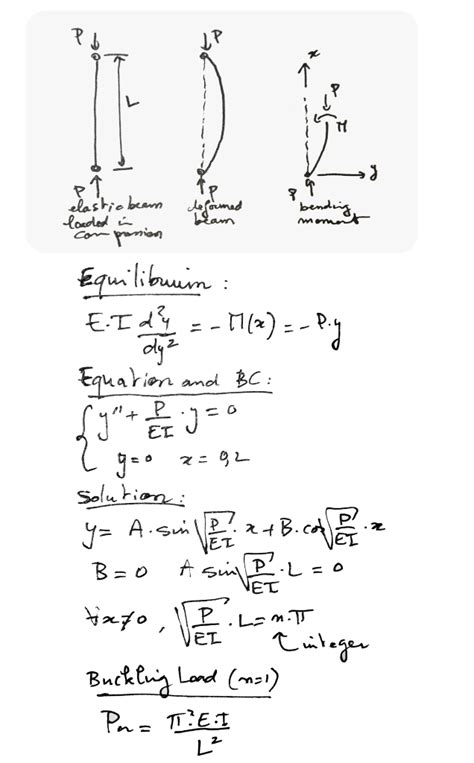 P P
L
P
P
x
P
M
y
P
elastic beam
loaded in
compression
deformed
beam
bending
moment
Equilibrium :
E.I d²y/dy² = - M(x) = - P.y
Equation and BC :
{ y" + P/EI . y = 0
y=0 x = 0,L
Solution :
y = A. sin √(P/EI) . x + B. cos √(P/EI) . x
B = 0 A sin √(P/EI) . L = 0
∀x≠0, √(P/EI) . L = n.π
↑ integer
Buckling Load (n=1)
Pn = π².E.I / L²